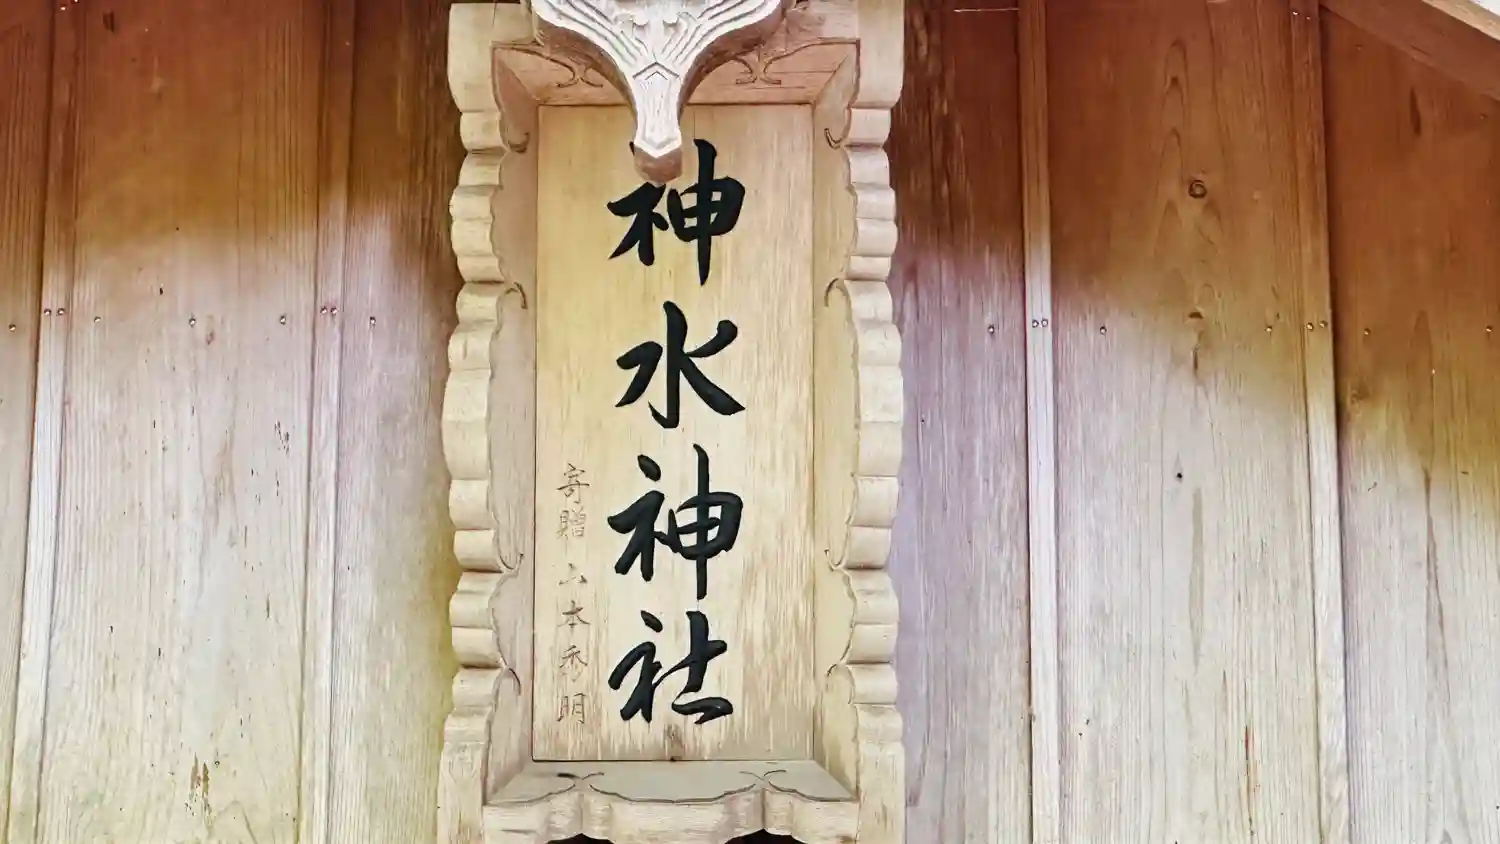 神水神社
寄贈 山本秀明